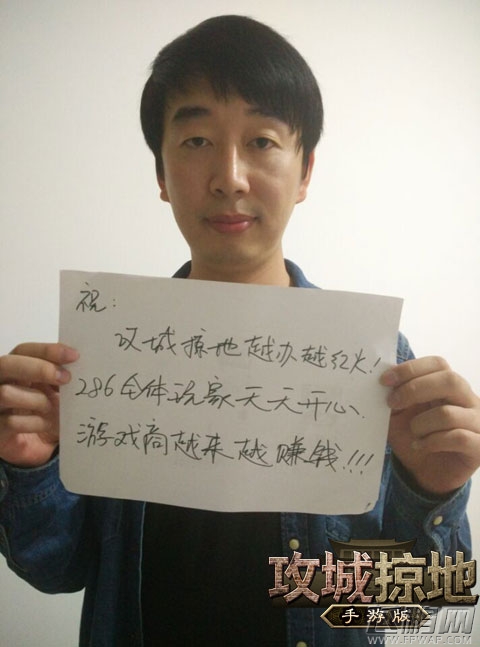 祝：
攻城掠地越办越红火！
286全体玩家天天开心、
游戏商越来越赚钱！！！
攻城掠地
手游版
飞鹏网
WWW.FPWAP.COM